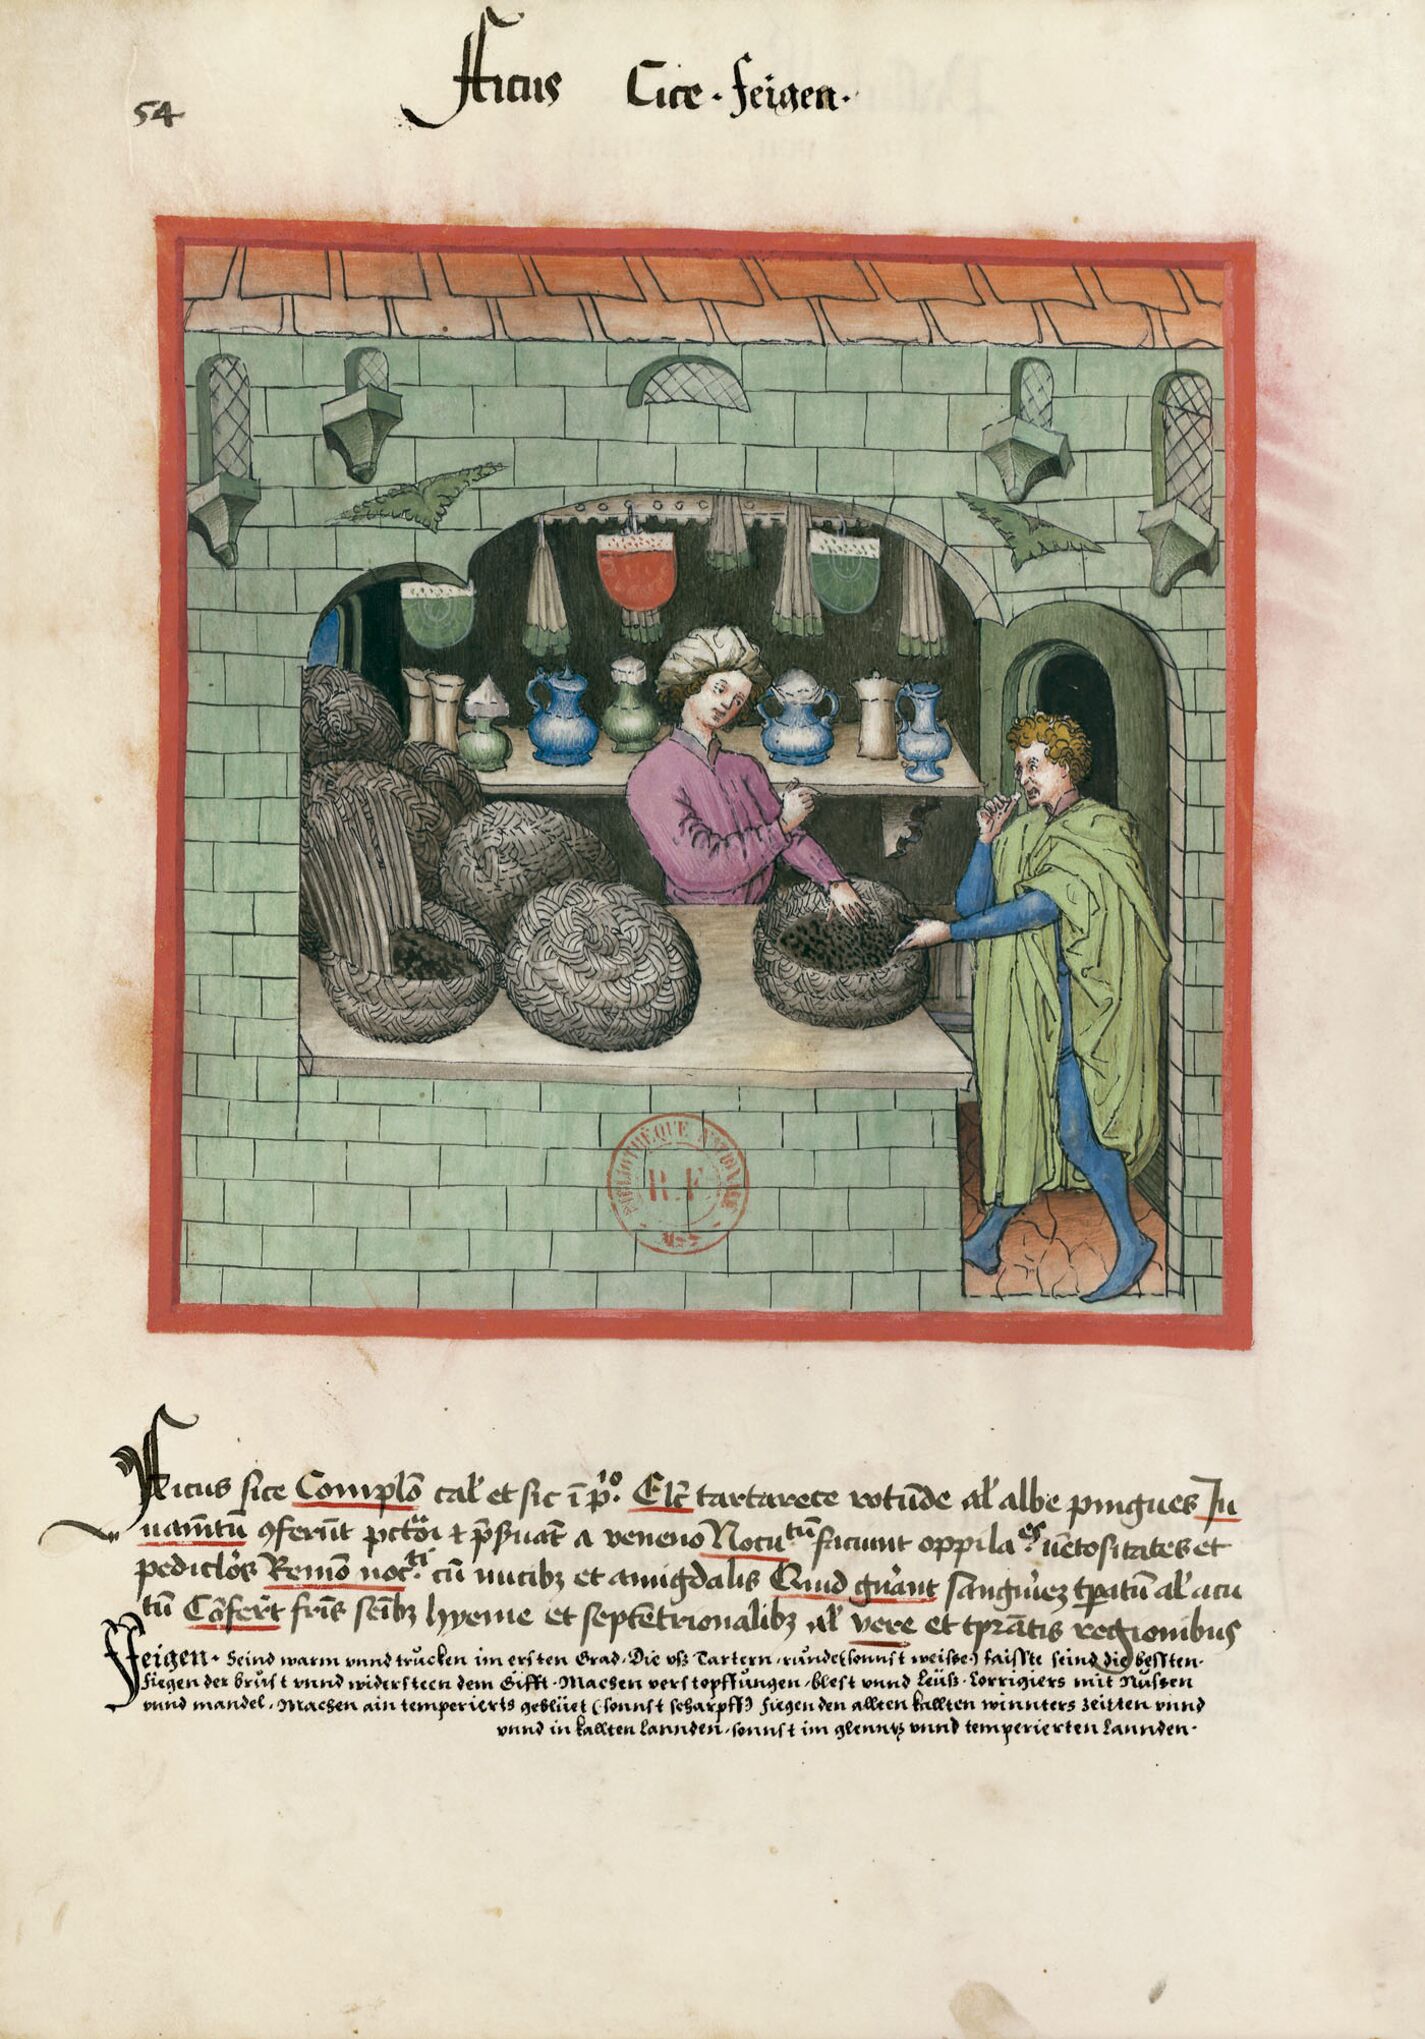 54
Ficus Sice · Feigen ·
Ficus sice Complo̅ cal' et sic i̅ p͛º. El͛c tartarece rotu̅de al' albe pingues Iu
uam̅tu̅ 9feru̅t pctoͥ ⁊ p̅ẜuat a veneno Nocu͛tu̅ faciunt oppila͛es ue̅tositates et
pediclo͛s Remo̅ noc͛ti cu̅ nucibꝫ et amigdalis Quid gn͛ant sangui͛eꝫ tꝑatu̅ al' acu
tu̅ Co̅fer͛t fri̅s se̅ibꝫ hyeme et septe̅trionalibꝫ al' vere et tp̱ra̅tis regionibus
Feigen · Seind warm vnnd trucken im ersten Grad · Die vß Tartern · rundet sonnst weisse) faisste seind die bessten ·
Fiegen der brust vnnd widersteen dem Gifft · Machen verstopffungen · blest vnnd Leüß · Corrigiers mit Nussen
vnnd mandel · Machen ain temperierts geblüet (sonnst scharpff) fiegen den allten kallten winnters zeitten vnnd
vnnd in kallten Lannden · sonnst im glenntz vnnd temperierten Lannden ·
BIBLIOTHÈQUE NATIONALE
R.F.
MSS